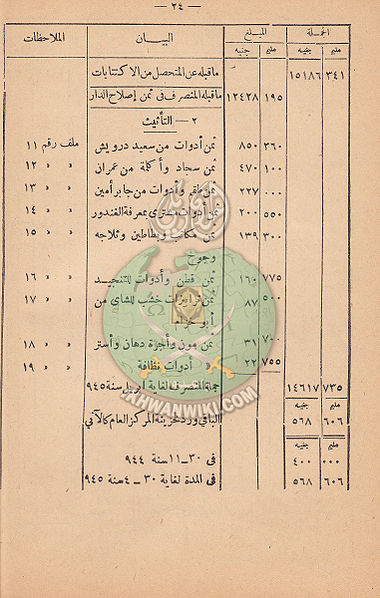 — ٢٤ —
الجملة المبلغ البيان الملاحظات
مليم جنيه مليم جنيه
٣٤١ ١٥١٨٦ ما قبله عن المتحصل من الاكتتابات
١٩٥ ١٢٤٢٨ ما قبله المنصرف فى ثمن إصلاح الدار
٢ — التأثيث
٣٦٠ ٨٥٠ ثمن أدوات من سعيد درويش ملف رقم ١١
١٠٠ ٤٧٠ ثمن سجاد وأكلمة من عمران » » ١٢
٠٠٠ ٢٢٧ ثمن طقم وأدوات من جابر أمين » » ١٣
٥٥٠ ٢٠٠ ثمن أدوات مشترى بمعرفة الغندور » » ١٤
٣٠٠ ١٣٩ ثمن مكاتب وبطاطين وثلاجه » » ١٥
وجوخ
٧٧٥ ١٦٠ ثمن قطن وأدوات للتنجيد » » ١٦
٥٠٠ ٨٧ ثمن ترابيزات خشب للشاى من » » ١٧
أبو
٧٠٠ ٣١ ثمن مون وأجرة دهان وأستر » » ١٨
٧٥٥ ٢٢ » أدوات نظافة » » ١٩
٧٣٥ ١٤٦١٧ جملة المنصرف لغاية ابريل سنة ٩٤٥
مليم جنيه
٦٠٦ ٥٦٨ الباقى ورد خزينة المركز العام كالآتى
مليم جنيه
٠٠٠ ٤٠٠ فى ٣٠–١١ سنة ٩٤٤
٦٠٦ ٥٦٨ فى المدة لغاية ٣٠–٤ سنة ٩٤٥
IKHWANWIKI.COM